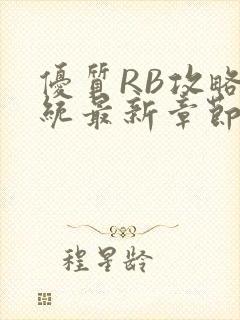 優質RB攻略
統最新章節
程星龄